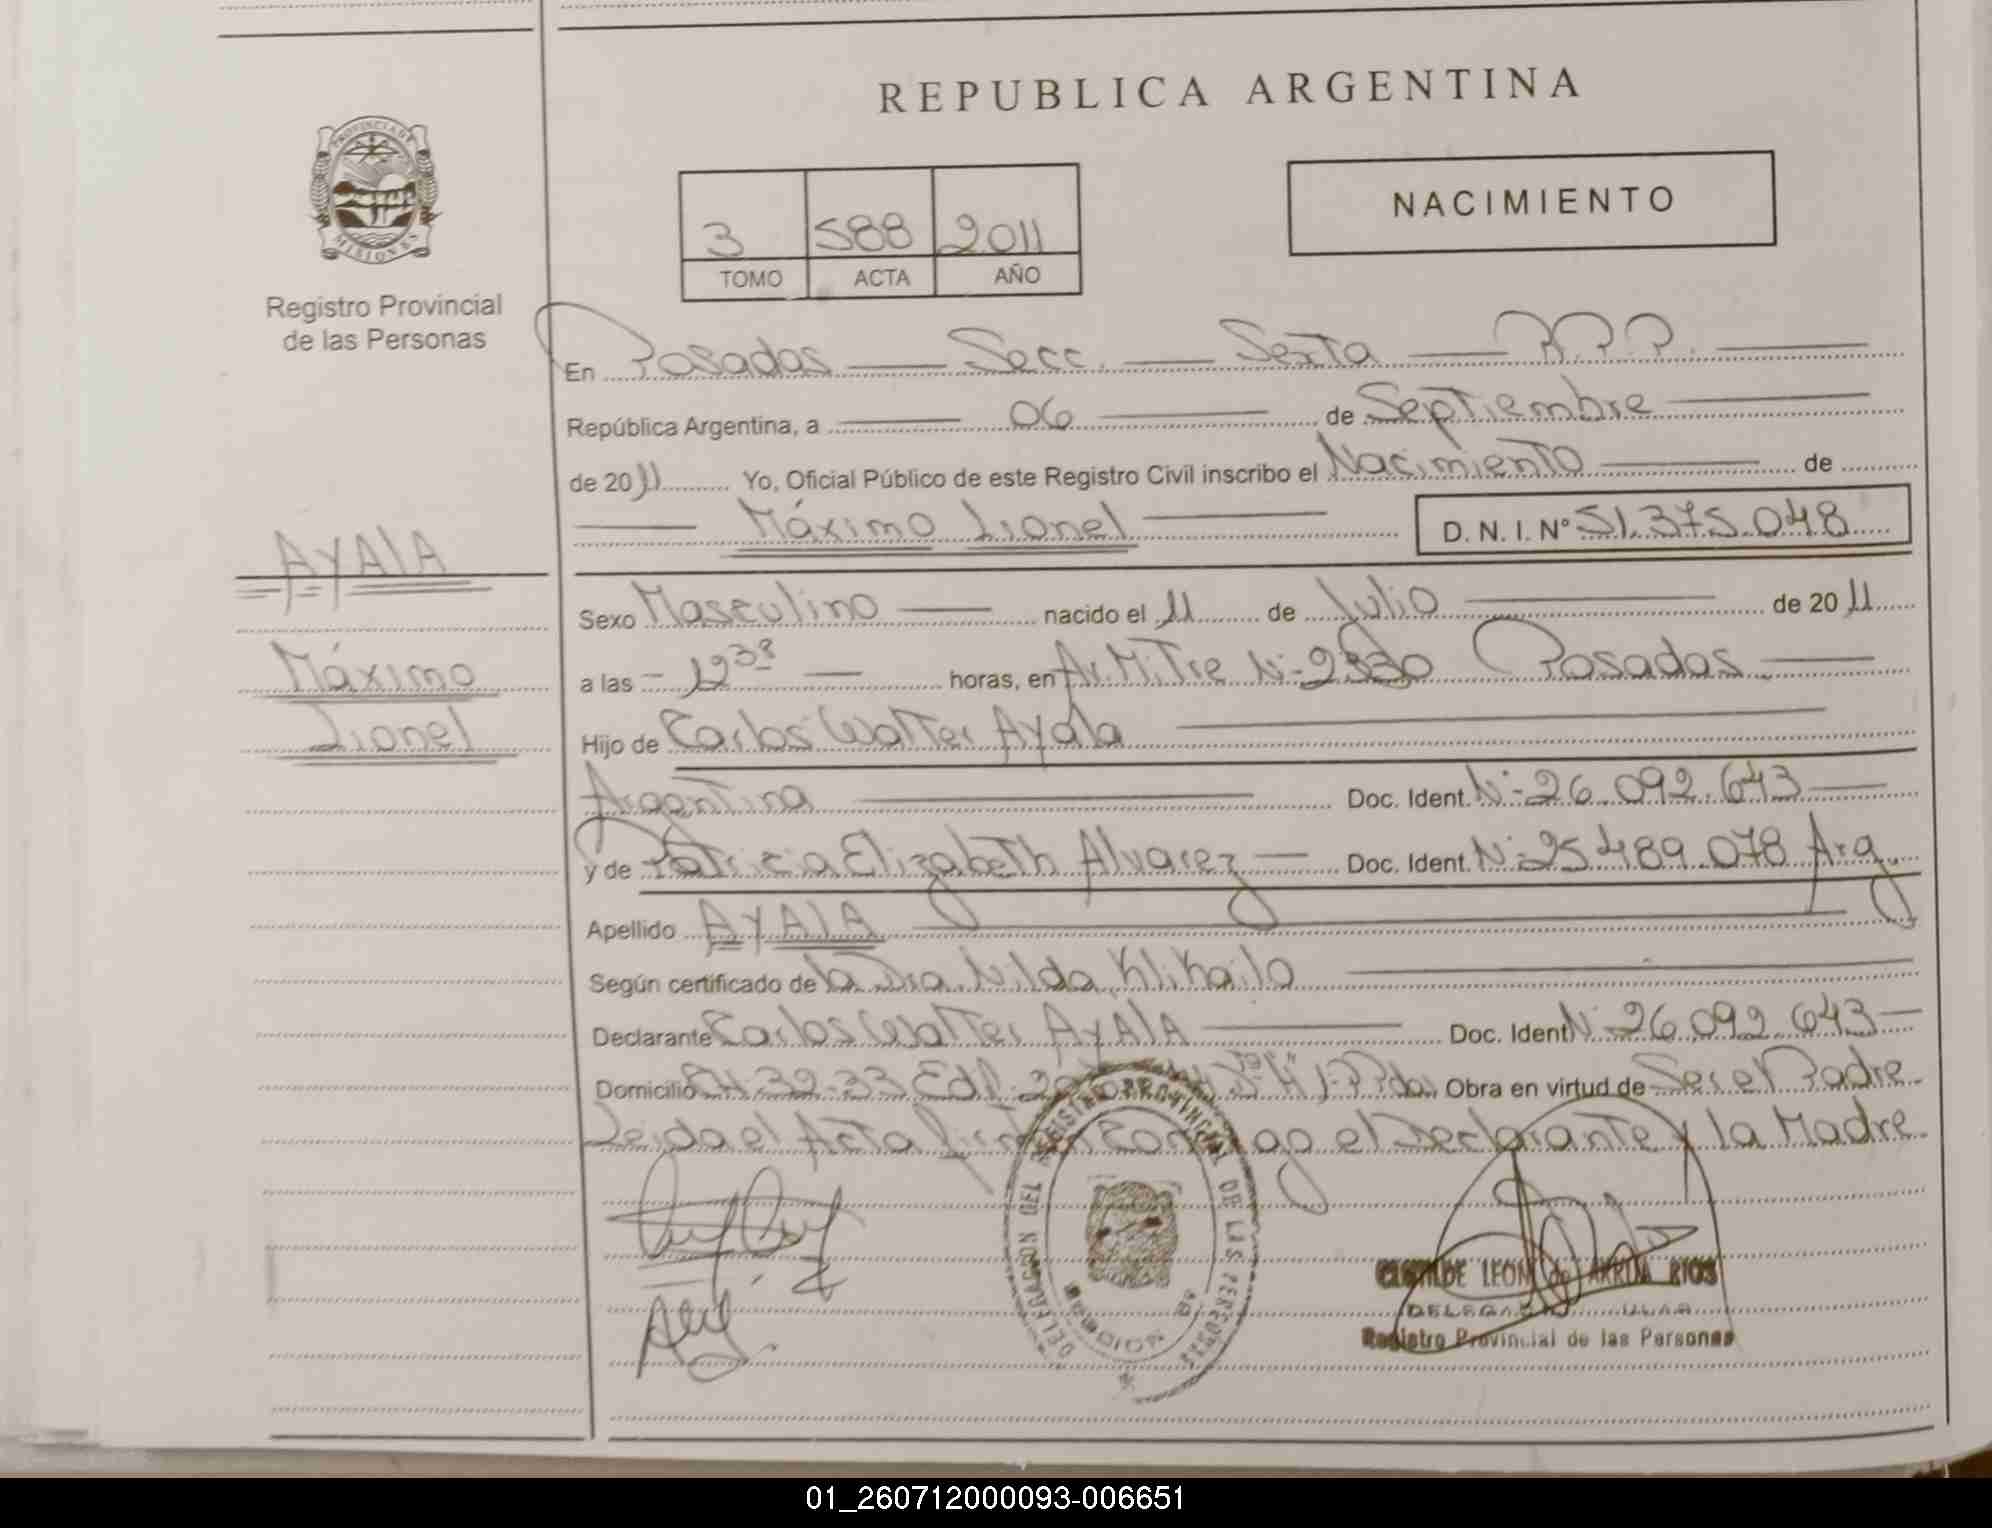 REPUBLICA ARGENTINA
PROVINCIA DE MISIONES
Registro Provincial
de las Personas
NACIMIENTO
3 588 2011
TOMO ACTA AÑO
En Posadas Secc. Sexta R.P.P.
República Argentina, a 06 de Septiembre
de 2011 Yo, Oficial Público de este Registro Civil inscribo el Nacimiento de
Máximo Lionel D. N. I. Nº 51.375.048
AYALA
Máximo
Lionel
Sexo Masculino nacido el 11 de Julio de 2011
a las 12 38 horas, en Av. Mitre Nº Posadas
Hijo de Carlos Walter Ayala
Argentina Doc. Ident. Nº 26.092.643
y de Patricia Elizabeth Alvarez Doc. Ident. Nº 25.489.078 Arg
Apellido AYALA
Según certificado de la Dra. Nilda Klikailo
Declarante Carlos Walter AYALA Doc. Ident Nº 26.092.643
Domicilio 32-33 Edf. Obra en virtud de Ser el Padre
Leida el Acta el Declarante y la Madre
DELEGACION DEL REGISTRO PROVINCIAL DE LAS PERSONAS
CLOTILDE LEON de ARRUA RIOS
Registro Provincial de las Personas
01_260712000093-006651